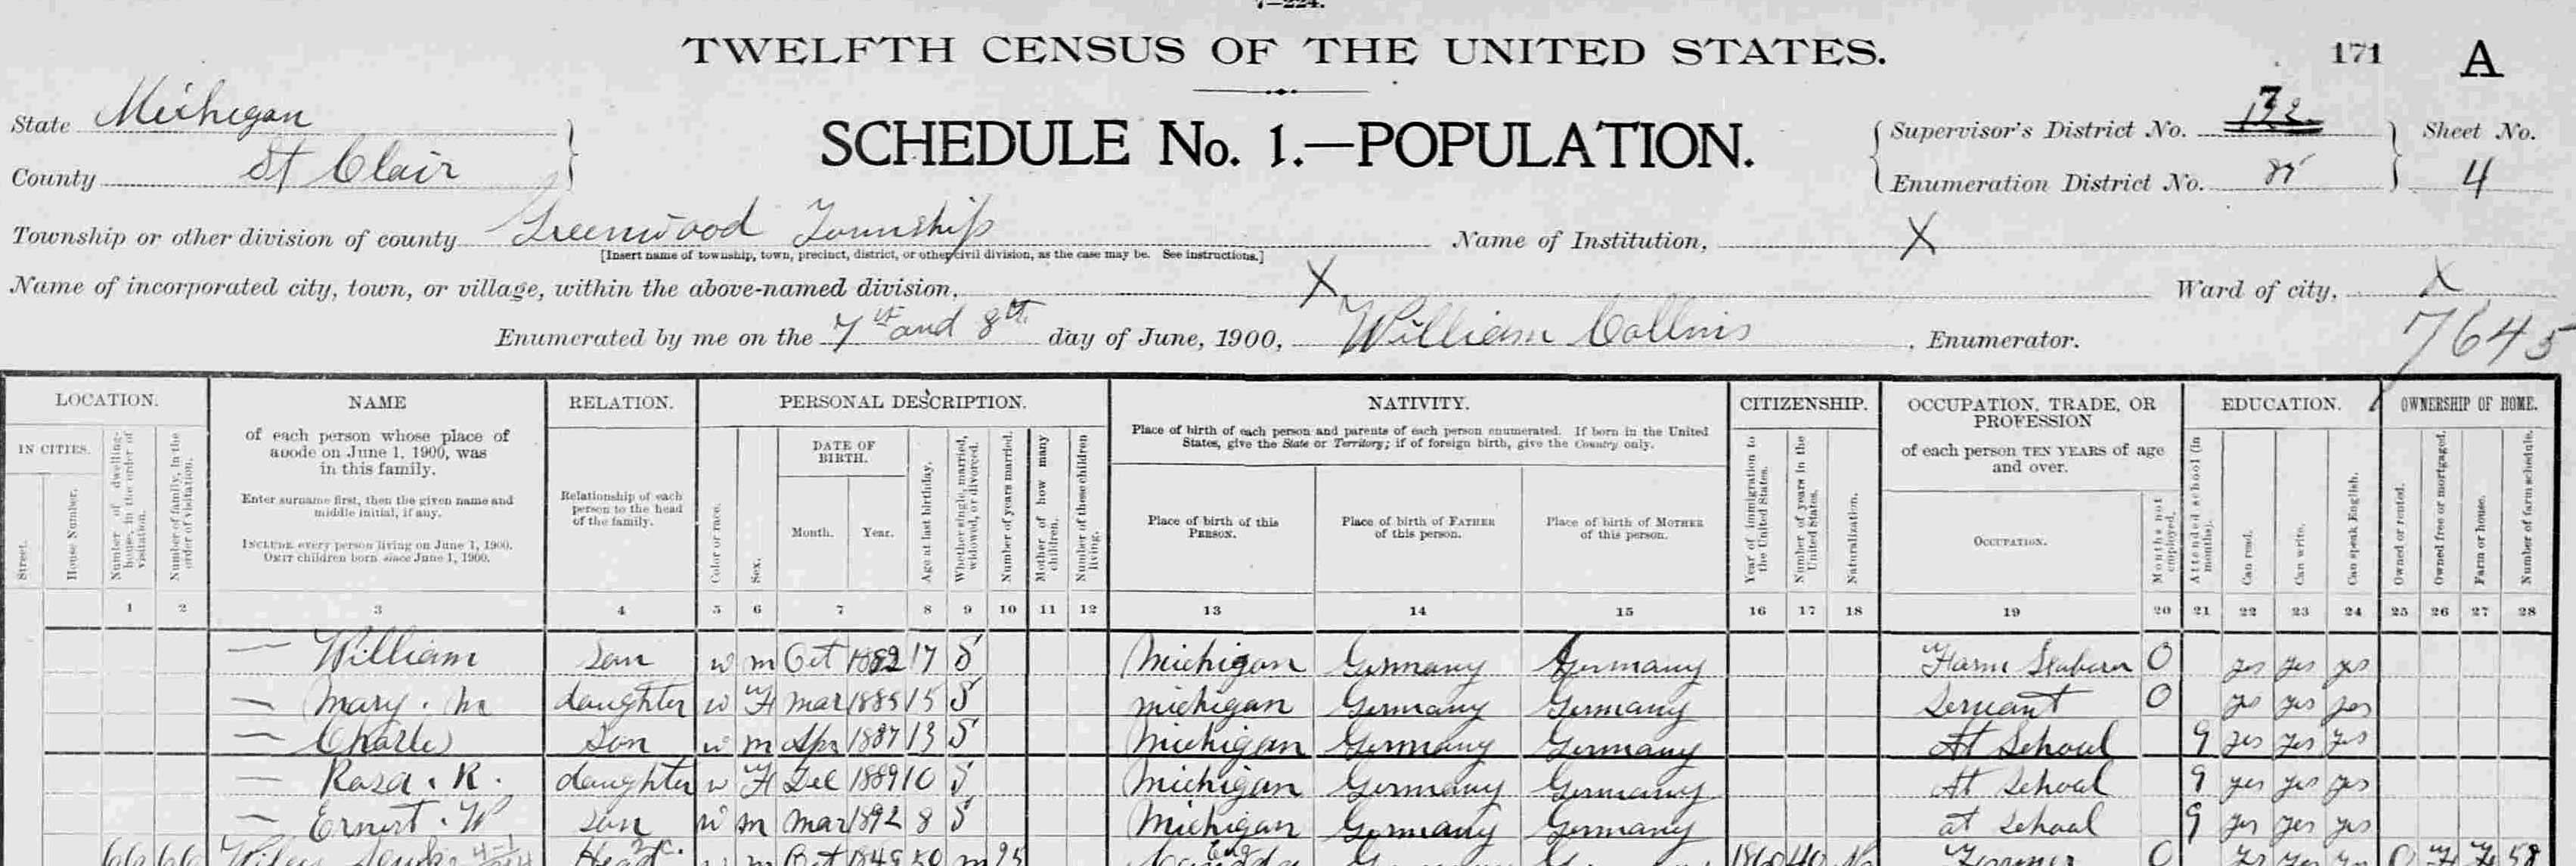 7—224.
TWELFTH CENSUS OF THE UNITED STATES.
171 A
State Michigan
County St Clair
SCHEDULE No. 1.—POPULATION.
Supervisor's District No. 7
Enumeration District No. 85
Sheet No.
4
Township or other division of county Greenwood Township
[Insert name of township, town, precinct, district, or other civil division, as the case may be. See instructions.]
Name of Institution, X
Name of incorporated city, town, or village, within the above-named division, X
Ward of city, X
Enumerated by me on the 7th and 8th day of June, 1900, William Collins, Enumerator.
7645
LOCATION.
IN CITIES.
Street.
House Number.
Number of dwelling-house, in the order of visitation.
Number of family, in the order of visitation.
NAME
of each person whose place of
abode on June 1, 1900, was
in this family.
Enter surname first, then the given name and
middle initial, if any.
INCLUDE every person living on June 1, 1900.
OMIT children born since June 1, 1900.
RELATION.
Relationship of each
person to the head
of the family.
PERSONAL DESCRIPTION.
Color or race.
Sex.
DATE OF
BIRTH.
Month.
Year.
Age at last birthday.
Whether single, married, widowed, or divorced.
Number of years married.
Mother of how many children.
Number of these children living.
NATIVITY.
Place of birth of each person and parents of each person enumerated. If born in the United
States, give the State or Territory; if of foreign birth, give the Country only.
Place of birth of this
PERSON.
Place of birth of FATHER
of this person.
Place of birth of MOTHER
of this person.
CITIZENSHIP.
Year of immigration to the United States.
Number of years in the United States.
Naturalization.
OCCUPATION, TRADE, OR
PROFESSION
of each person TEN YEARS of age
and over.
OCCUPATION.
Months not employed.
EDUCATION.
Attended school (in months).
Can read.
Can write.
Can speak English.
OWNERSHIP OF HOME.
Owned or rented.
Owned free or mortgaged.
Farm or house.
Number of farm schedule.
1 2 3 4 5 6 7 8 9 10 11 12 13 14 15 16 17 18 19 20 21 22 23 24 25 26 27 28
— William Son W m Oct 1882 17 S Michigan Germany Germany Farm Laborer 0 yes yes yes
— Mary. M daughter W F Mar 1885 15 S Michigan Germany Germany Servant 0 yes yes yes
— Charles Son W m Apr 1887 13 S Michigan Germany Germany At School 9 yes yes yes
— Rosa. R. daughter W F Dec 1889 10 S Michigan Germany Germany At School 9 yes yes yes
— Ernest. W son W m Mar 1892 8 S Michigan Germany Germany at School 9 yes yes yes
66 66 Head W m Oct 1849 50 m 25 1860 40 Na Farmer 0 yes yes yes O F F 58